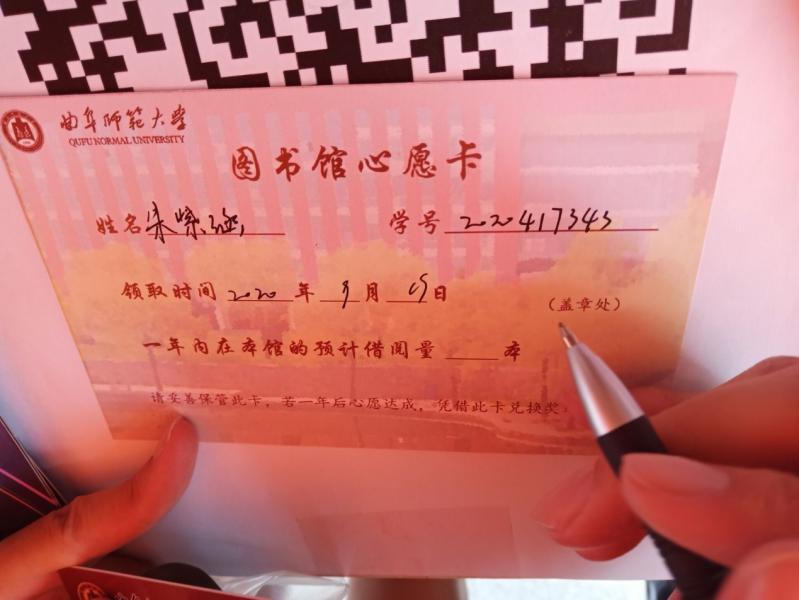 曲阜师范大学
QUFU NORMAL UNIVERSITY
图书馆心愿卡
姓名 朱紫涵 学号 2020417343
领取时间 2020 年 9 月 19 日
(盖章处)
一年内在本馆的预计借阅量 本
请妥善保管此卡，若一年后心愿达成，凭借此卡兑换奖